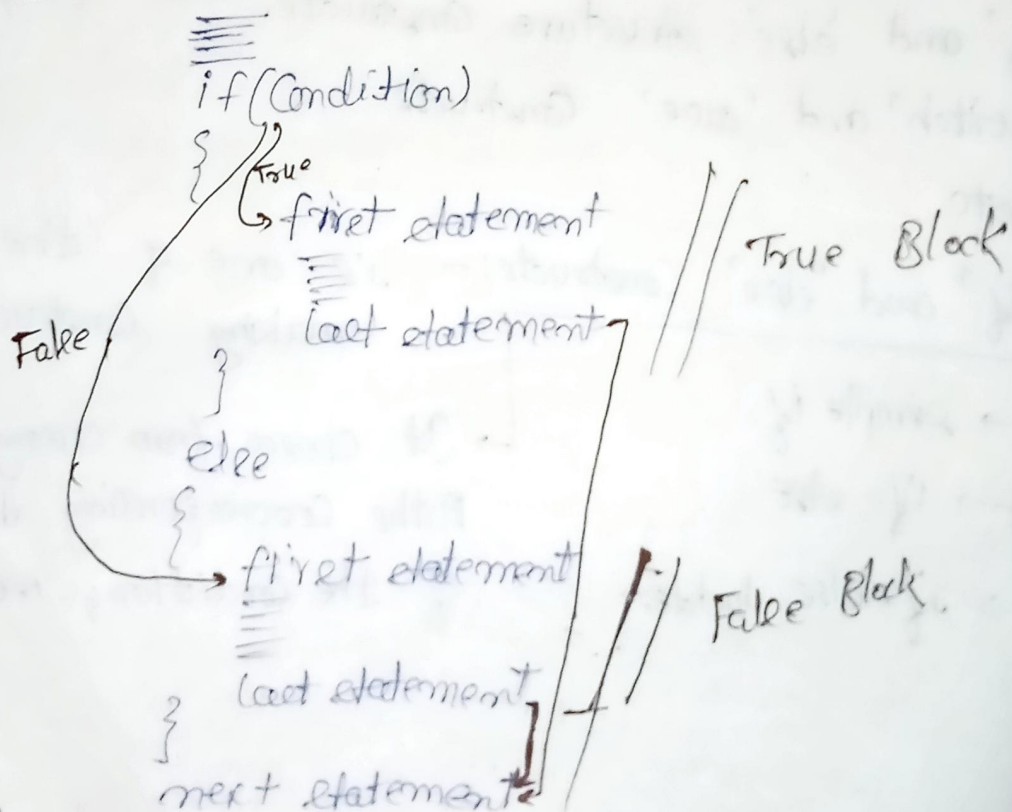 if (Condition)
{
True
first statement
// True Block
last statement
False
}
else
{
first statement
// False Block.
last statement
}
next statement